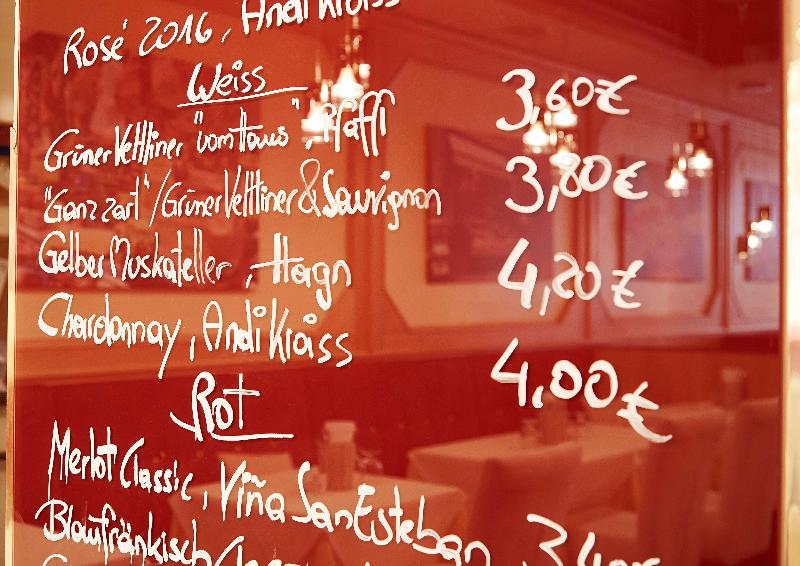 Rosé 2016, Andi Kraiss
Weiss
Grüner Veltliner "vom Haus", Pfaffl 3,60€
"Ganz zart"/Grüner Veltliner & Sauvignon 3,80€
Gelber Muskateller, Hagn 4,20€
Chardonnay, Andi Kraiss 4,00€
Rot
Merlot Classic, Viña San Esteban
Blaufränkisch